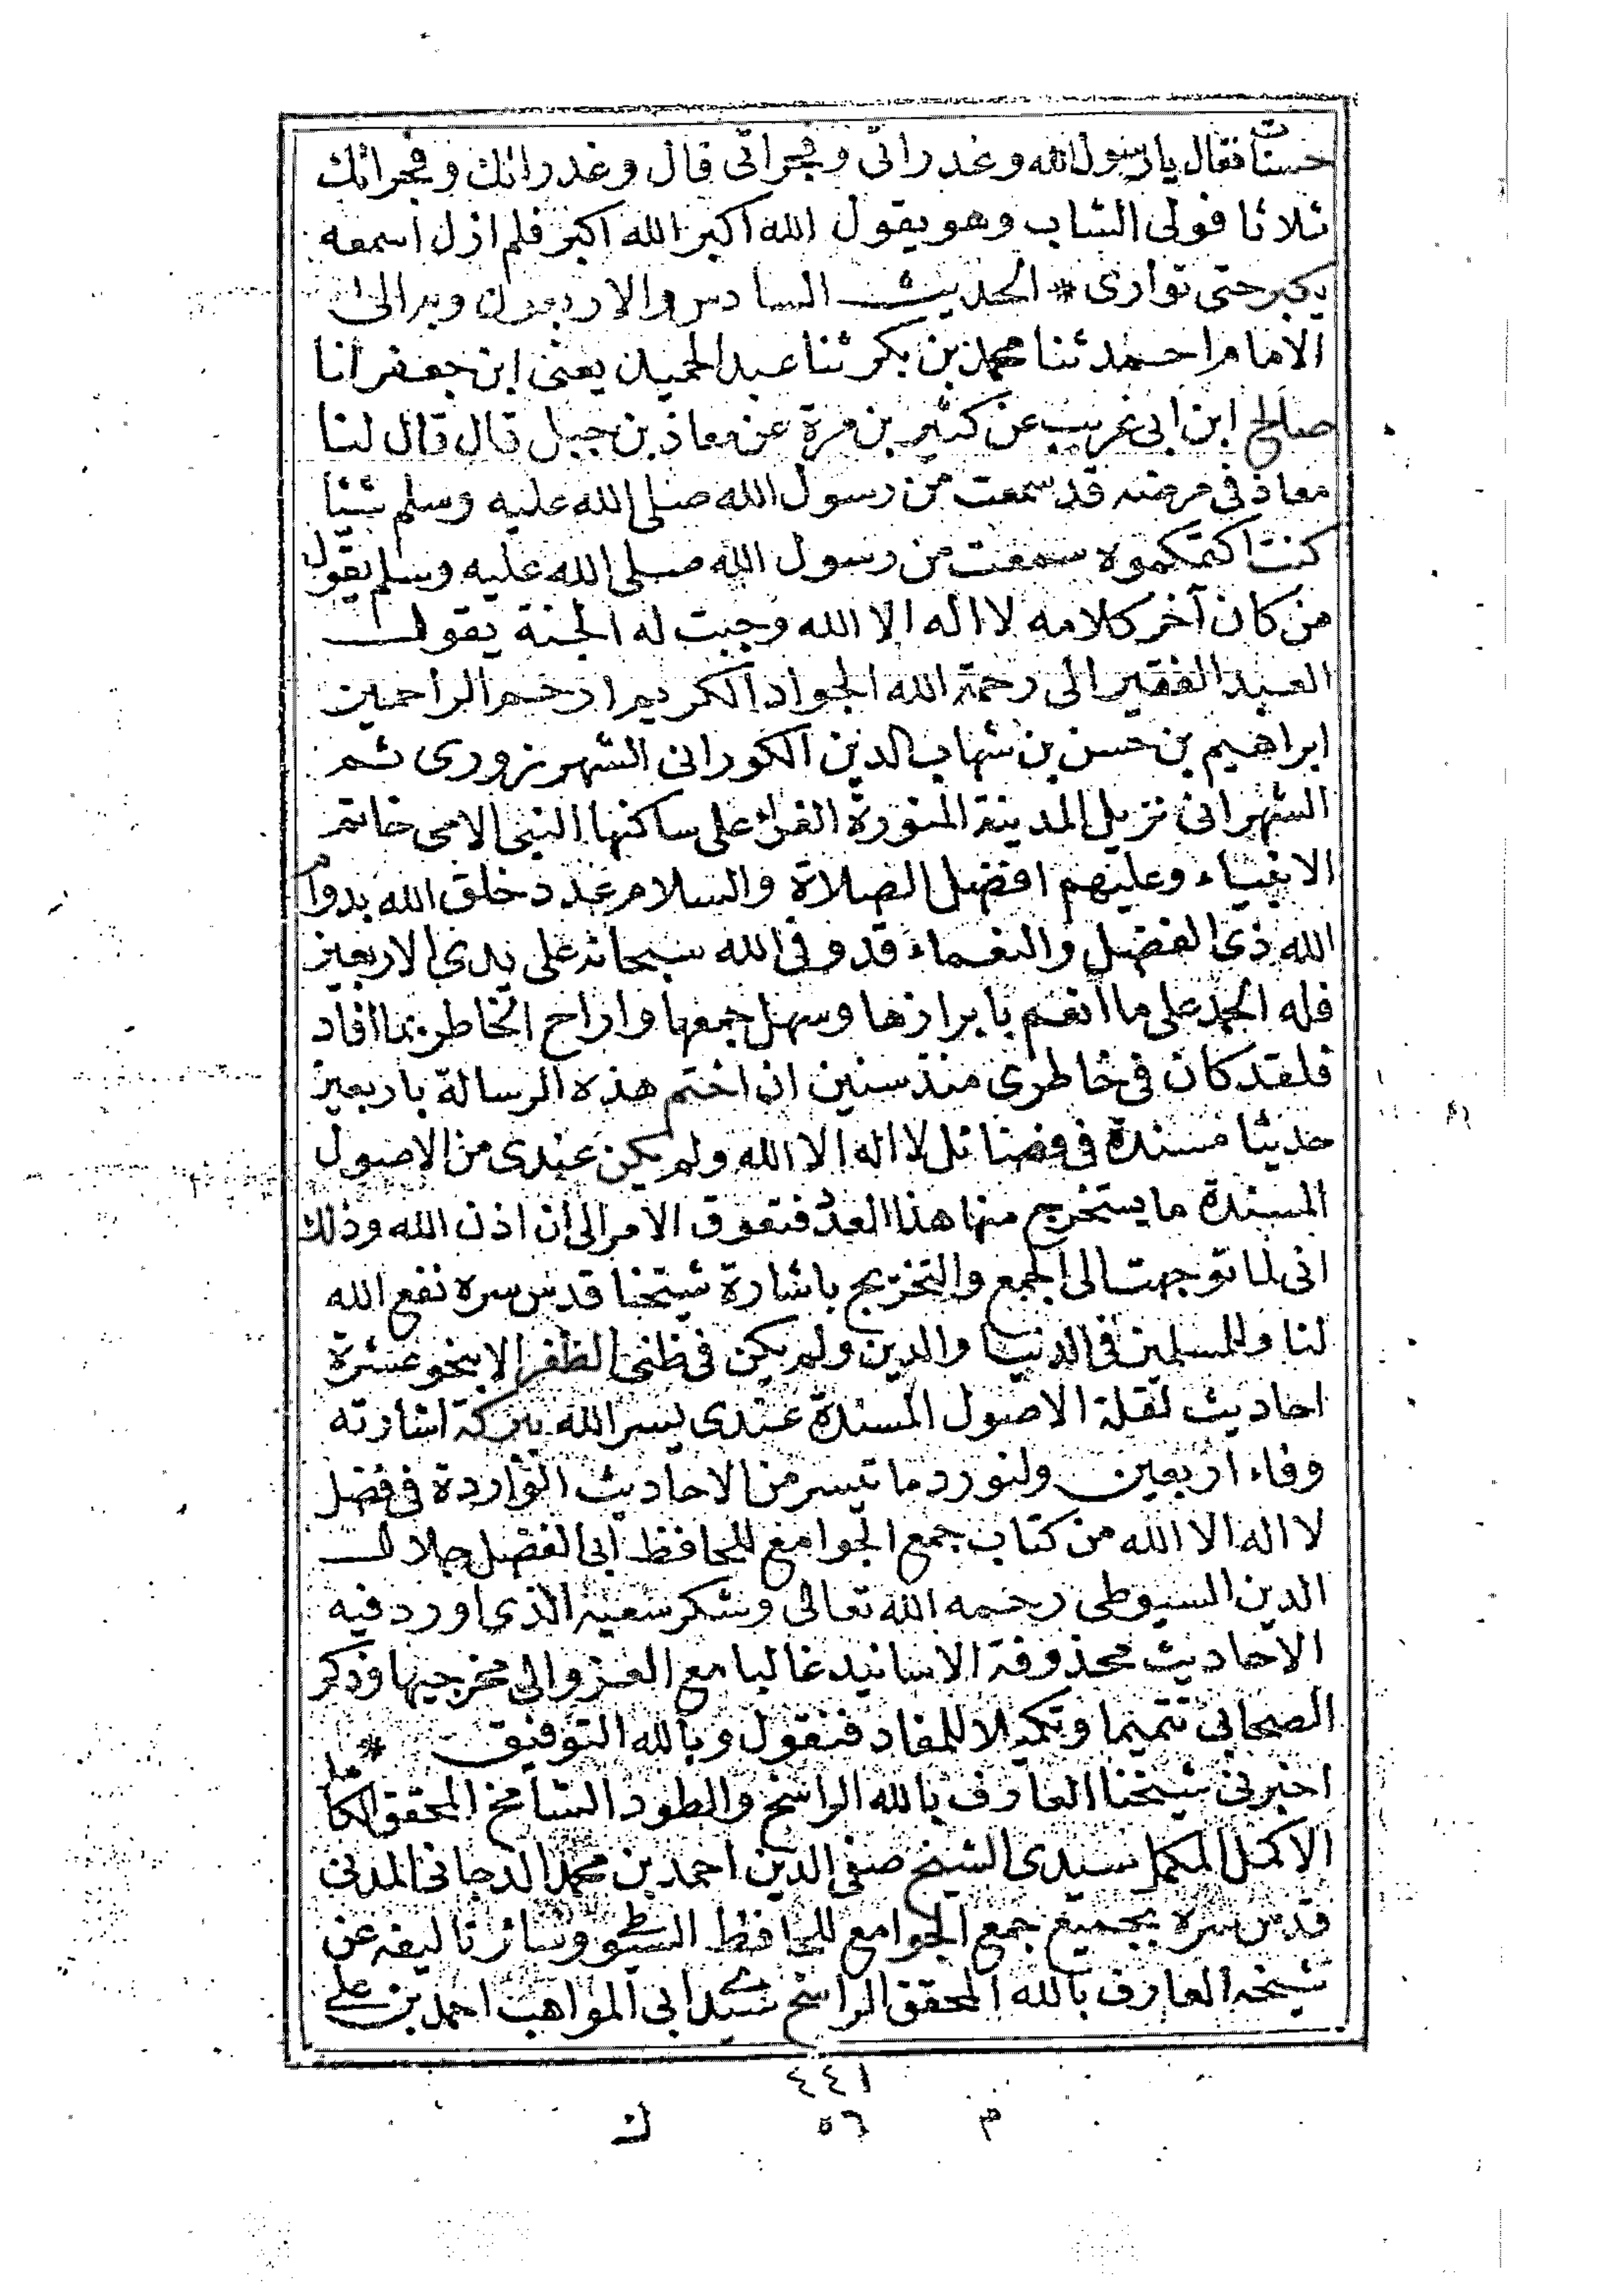 حسنات فقال يا رسول الله وغدراتى وفجراتى قال وغدراتك وفجراتك
ثلاثا فولى الشاب وهو يقول الله اكبر الله اكبر فلم ازل اسمعه
يكبر حتى توارى * الحديث السادس والاربعون وبه الى
الامام احمد ثنا محمد بن بكر ثنا عبد الحميد يعنى ابن جعفر انا
صالح ابن ابى غريب عن كثير بن مرة عن معاذ بن جبل قال قال لنا
معاذ فى مرضه قد سمعت من رسول الله صلى الله عليه وسلم شيئا
كنت اكتمكموه سمعت من رسول الله صلى الله عليه وسلم يقول
من كان آخر كلامه لا اله الا الله وجبت له الجنة يقول
العبد الفقير الى رحمة الله الجواد الكريم ارحم الراحمين
ابراهيم بن حسن بن شهاب الدين الكورانى الشهرزورى ثم
الشهرانى نزيل المدينة المنورة الغراء على ساكنها النبى الامى خاتم
الانبياء وعليهم افضل الصلاة والسلام عدد خلق الله بدوام
الله ذى الفضل والنعماء قد وفى الله سبحانه على يدى الاربعين
فله الحمد على ما انعم بابرازها وسهل جمعها واراح الخاطر بما افاد
فلقد كان فى خاطرى منذ سنين ان اختم هذه الرسالة باربعين
حديثا مسندة فى فضائل لا اله الا الله ولم يكن عندى من الاصول
المسندة ما يستخرج منها هذا العدد فتعوق الامر الى ان اذن الله وذلك
انى لما توجهت الى الجمع والتخريج باشارة شيخنا قدس سره نفع الله
لنا وللمسلمين فى الدنيا والدين ولم يكن فى ظنى الظفر الا بنحو عشرة
احاديث لقلة الاصول المسندة عندى يسر الله ببركة اشارته
وفاء اربعين ولنورد ما تيسر من الاحاديث الواردة فى فضل
لا اله الا الله من كتاب جمع الجوامع للحافظ ابى الفضل جلال
الدين السيوطى رحمه الله تعالى وشكر سعيه الذى اورد فيه
الاحاديث محذوفة الاسانيد غالبا مع العزو الى مخرجيها وذكر
الصحابى تتميما وتكميلا للمفاد فنقول وبالله التوفيق *
اخبرنى شيخنا العارف بالله الراسخ والطود الشامخ المحقق الكامل
الاكمل المكمل سيدى الشيخ صفى الدين احمد بن محمد الدجانى المدنى
قدس سره بجميع جمع الجوامع للحافظ السيوطى وسائر تاليفه عن
شيخه العارف بالله المحقق الراسخ سيدى ابى المواهب احمد بن على
٤٤١
م ٥٦ ك